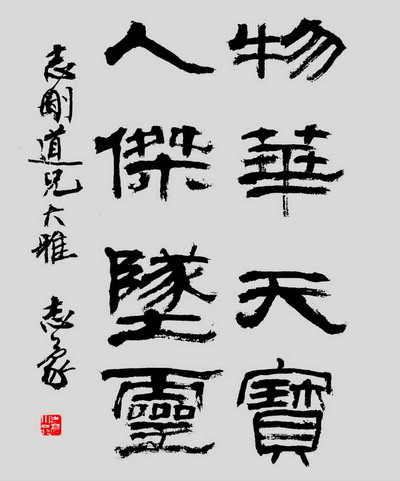 物華天寶
人傑墜靈
志剛道兄大雅 志